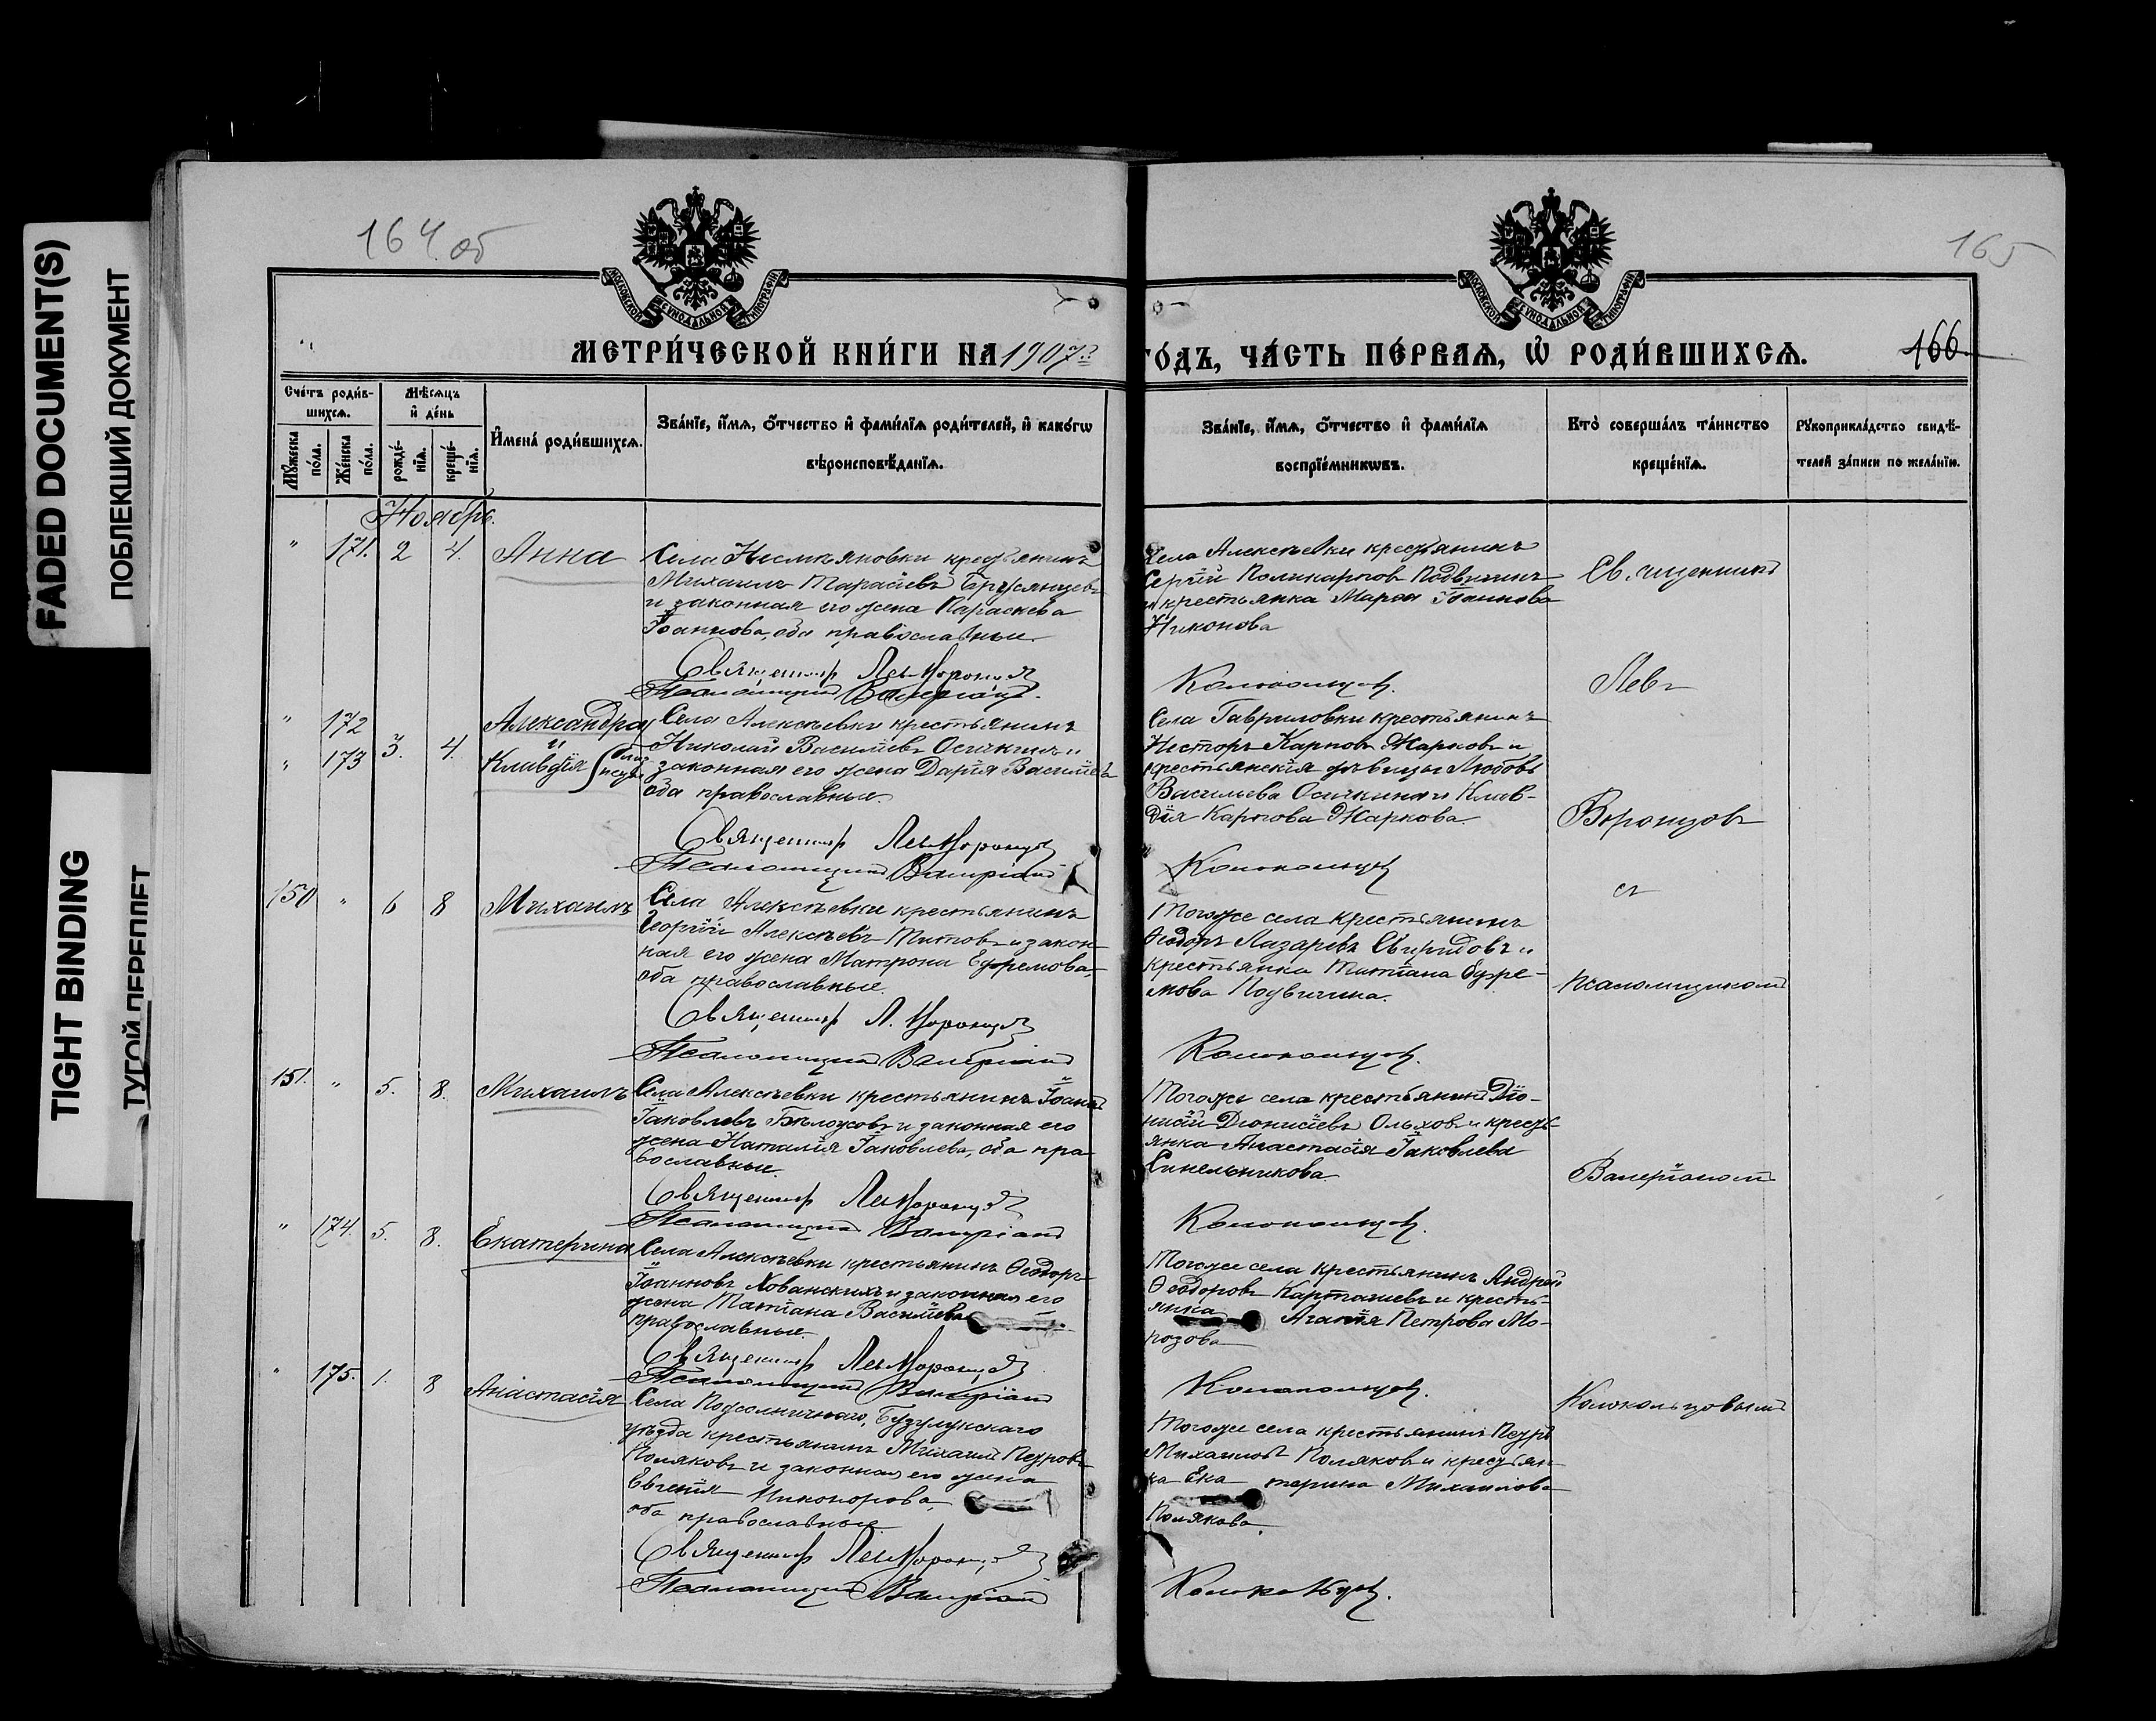 FADED DOCUMENT(S)
ПОБЛЕКШИЙ ДОКУМЕНТ
TIGHT BINDING
ТУГОЙ ПЕРЕПЛЕТ
164 об
165
166
МЕТРИ́ЧЕСКОЙ КНИ́ГИ НА 1907
ГО́ДЪ, ЧА́СТЬ ПЕ́РВАѦ, Ѡ҆ РОДИ́ВШИХСѦ.
Сче́тъ роди́в-
шихсѧ.
Мѣ́сѧцъ
и҆ де́нь
Мꙋ́жеска по́ла.
Же́нска по́ла.
рожде́-
нїѧ.
креще́-
нїѧ.
И҆мена̀ роди́вшихсѧ.
Зва́нїе, и҆́мѧ, ѻ҆́тчество и҆ фами́лїѧ роди́телей, и҆ како́гѡ
вѣроисповѣ́данїѧ.
Зва́нїе, и҆́мѧ, ѻ҆́тчество и҆ фами́лїѧ
воспрїе́мникѡвъ.
Кто̀ соверша́лъ та́инство
креще́нїѧ.
Рꙋкоприкла́дство свидѣ́-
телей за́писи по жела́нїю.
Ноябрь.
" 171. 2 4. Анна
Села крестьянинъ
Михаилъ Тарасіевъ
и законная его жена Параскева
Іоаннова, оба православные.
Священникъ Левъ Воронцовъ
Псаломщикъ Валеріанъ
Села Алексѣевки крестьянинъ
Сергій Поликарповъ Подвигинъ
и крестьянка Марѳа Іоаннова
Никонова
Колокольцовъ.
Священникъ
Левъ
" 172
" 173 3. 4.
Александра
и
Клавдія близнецы
Села Алексѣевки крестьянинъ
Николай Василіевъ Осичкинъ и
законная его жена Дарія Василіева
оба православные.
Священникъ Левъ Воронцовъ
Псаломщикъ Валеріанъ
Села Гавриловки крестьянинъ
Несторъ Карповъ Жарковъ и
крестьянскія дѣвицы Любовь
Васильева Осичкина и Клав-
дія Карпова Жаркова.
Колокольцовъ
Воронцовъ
съ
150 " 6 8 Михаилъ
Села Алексѣевки крестьянинъ
Георгій Алексѣевъ Титовъ и закон-
ная его жена Матрона Ефремова,
оба православные.
Священникъ Л. Воронцовъ
Псаломщикъ Валеріанъ
Тогоже села крестьянинъ
Ѳеодоръ Лазаревъ Свиридовъ и
крестьянка Татіана Ефре-
мова Подвигина.
Колокольцовъ.
псаломщикомъ
151. " 5. 8. Михаилъ
Села Алексѣевки крестьянинъ Іоаннъ
Іаковлевъ Бѣлоусовъ и законная его
жена Наталія Іаковлева, оба пра-
вославные.
Священникъ Левъ Воронцовъ
Псаломщикъ Валеріанъ
Тогоже села крестьянинъ Діо-
нисій Діонисіевъ Ольховъ и кресть-
янка Анастасія Іаковлева
Синельникова.
Колокольцовъ.
Валеріаномъ
" 174. 5. 8. Екатерина
Села Алексѣевки крестьянинъ Ѳеодоръ
Іоанновъ Хованскихъ и законная его
жена Татіана Василіева
православные.
Священникъ Левъ Воронцовъ
Псаломщикъ Валеріанъ
Тогоже села крестьянинъ Андрей
Ѳеодоровъ Карташевъ и кресть-
янка Агапія Петрова Мо-
розова
Колокольцовъ.
Колокольцовымъ
" 175. 1. 8 Анастасія
Села Подсолнечнаго, Бузулукскаго
уѣзда крестьянинъ Михаилъ Петровъ
Поляковъ и законная его жена
Евгенія Никонорова,
оба православные.
Священникъ Левъ Воронцовъ
Псаломщикъ Валеріанъ
Тогоже села крестьянинъ Петръ
Михаиловъ Поляковъ и крестьян-
ка Екатерина Михаилова
Полякова.
Колокольцовъ.